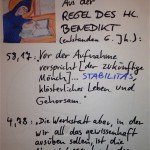 Aus der
REGEL DES HL.
BENEDIKT
(entstanden 6. Jh.):
58,17: "Vor der Aufnahme
verspricht [der zukünftige
Mönch]... STABILITAS,
klösterliches Leben und
Gehorsam."
4,78: "Die Werkstatt aber, in der
wir all das gewissenhaft
ausüben sollen, ist die